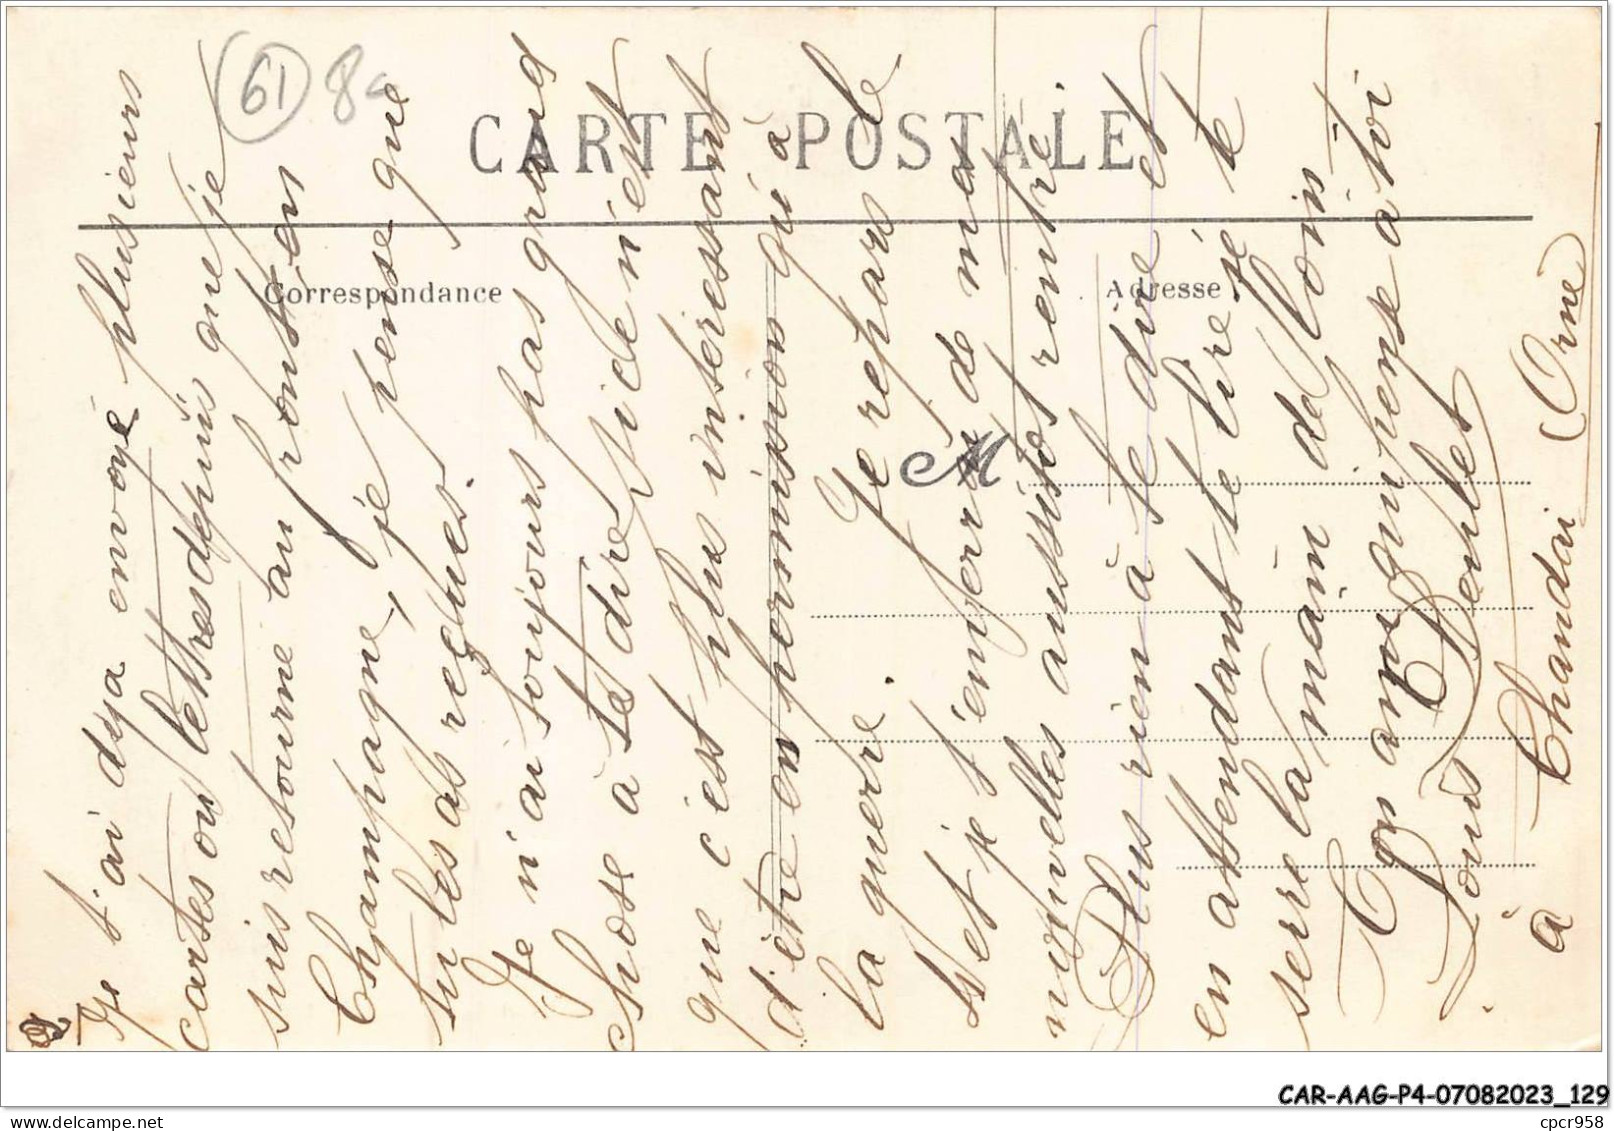 61 8
CARTE POSTALE
Correspondance
Adresse
M
2
Je t'ai déja envoyé plusieurs
cartes ou lettres depuis que je
suis retourné au front en
Champagne, je pense que
tu les as reçues.
Je n'ai toujours pas grand
chose à te dire si ce n'est
que c'est plus intéressant
d'être en permission qu'à
la guerre. Je repars le
et je t'enverrai de mes
nouvelles aussitôt rentré.
Plus rien à te dire et
en attendant te lire je te
serre la main de loin
Ton ami qui pense à toi
Louis
à Chandai (Orne
CAR-AAG-P4-07082023_129
www.delcampe.net
cpcr958